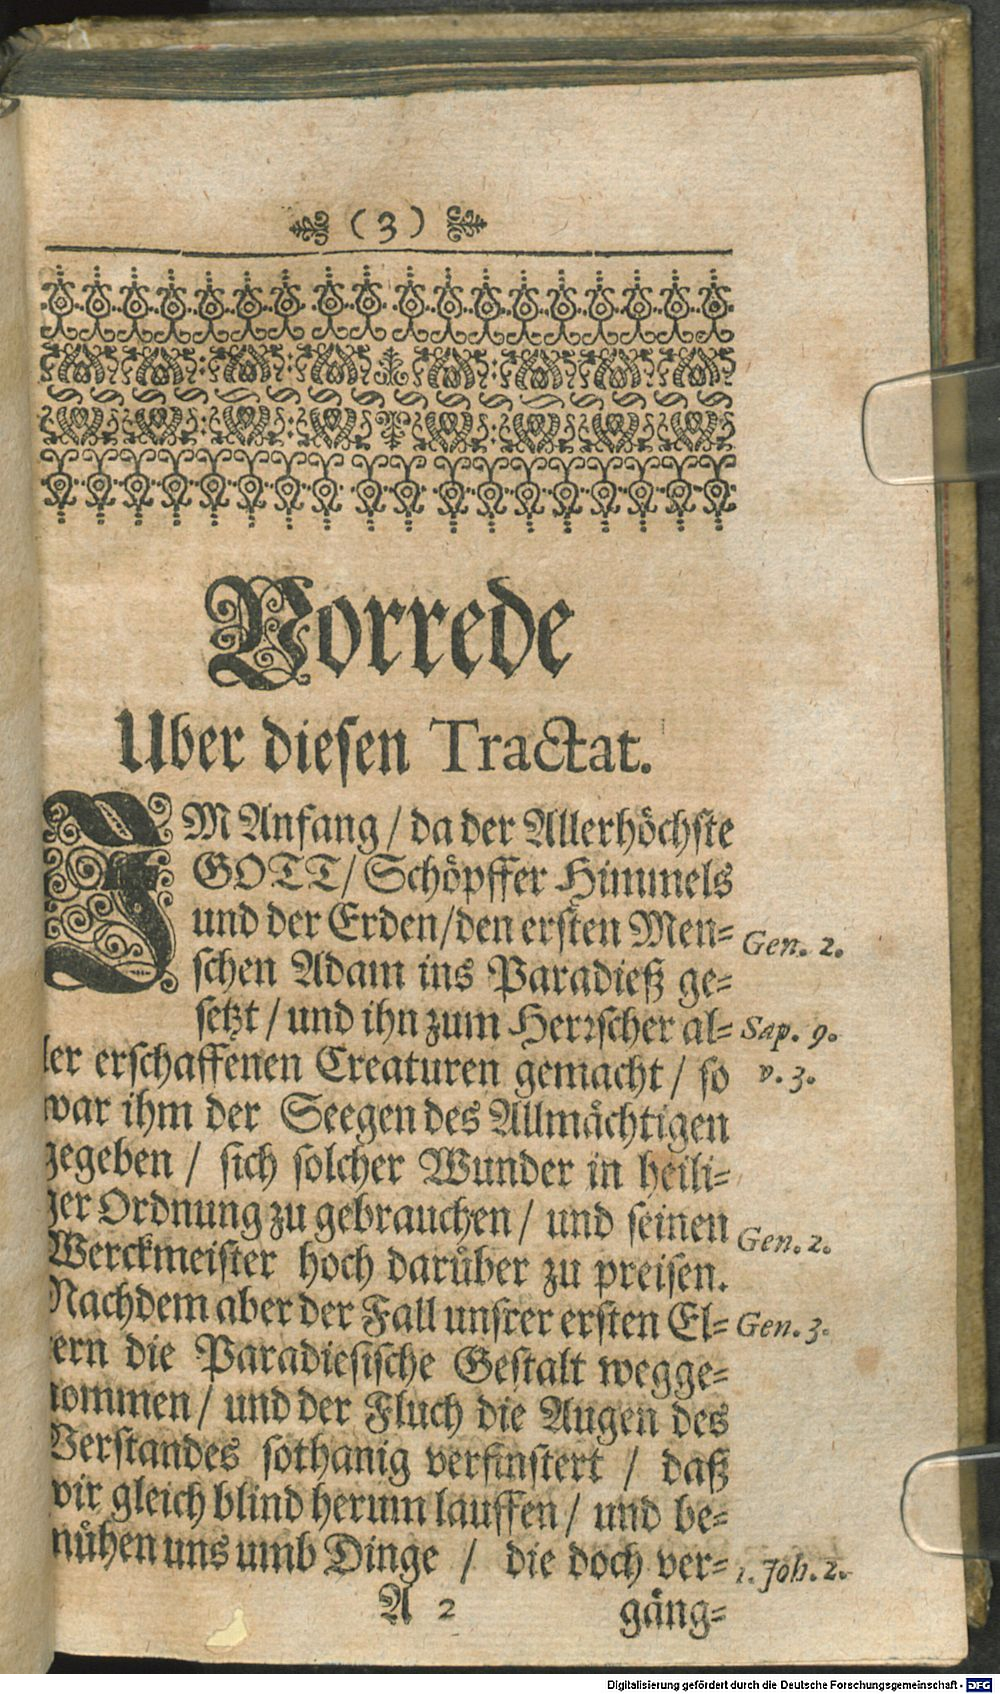 (3)
Vorrede
Uber diesen Tractat.
IM Anfang / da der Allerhöchste
GOTT / Schöpffer Himmels
und der Erden / den ersten Men=
Gen. 2.
schen Adam ins Paradieß ge=
setzt / und ihn zum Herꝛscher al=
Sap. 9.
v. 3.
ler erschaffenen Creaturen gemacht / so
war ihm der Seegen des Allmächtigen
gegeben / sich solcher Wunder in heili=
ger Ordnung zu gebrauchen / und seinen
Gen. 2.
Werckmeister hoch darüber zu preisen.
Nachdem aber der Fall unsrer ersten El=
Gen. 3.
tern die Paradiesische Gestalt wegge=
nommen / und der Fluch die Augen des
Verstandes sothanig verfinstert / daß
wir gleich blind herum lauffen / und be=
mühen uns umb Dinge / die doch ver=
1. Joh. 2.
A 2 gäng=
Digitalisierung gefördert durch die Deutsche Forschungsgemeinschaft - DFG